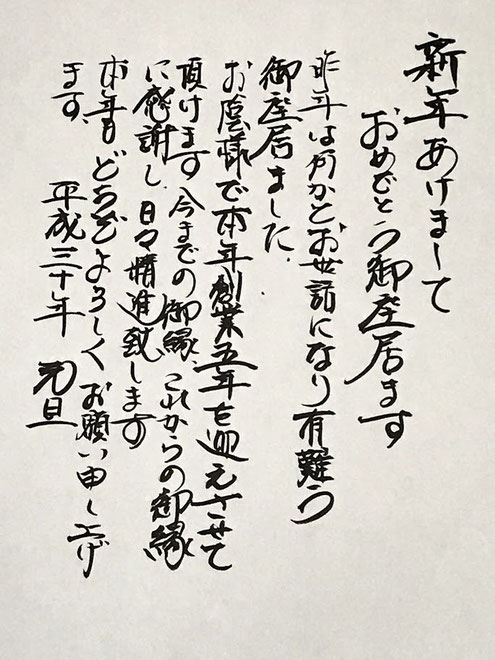 新年あけまして
おめでとう御座居ます
昨年は何かとお世話になり有難う
御座居ました.
お陰様で本年創業五年を迎えさせて
頂けます 今までの御縁、これからの御縁
に感謝し、日々精進致します
本年もどうぞよろしくお願い申し上げ
ます.
平成三十年 元旦